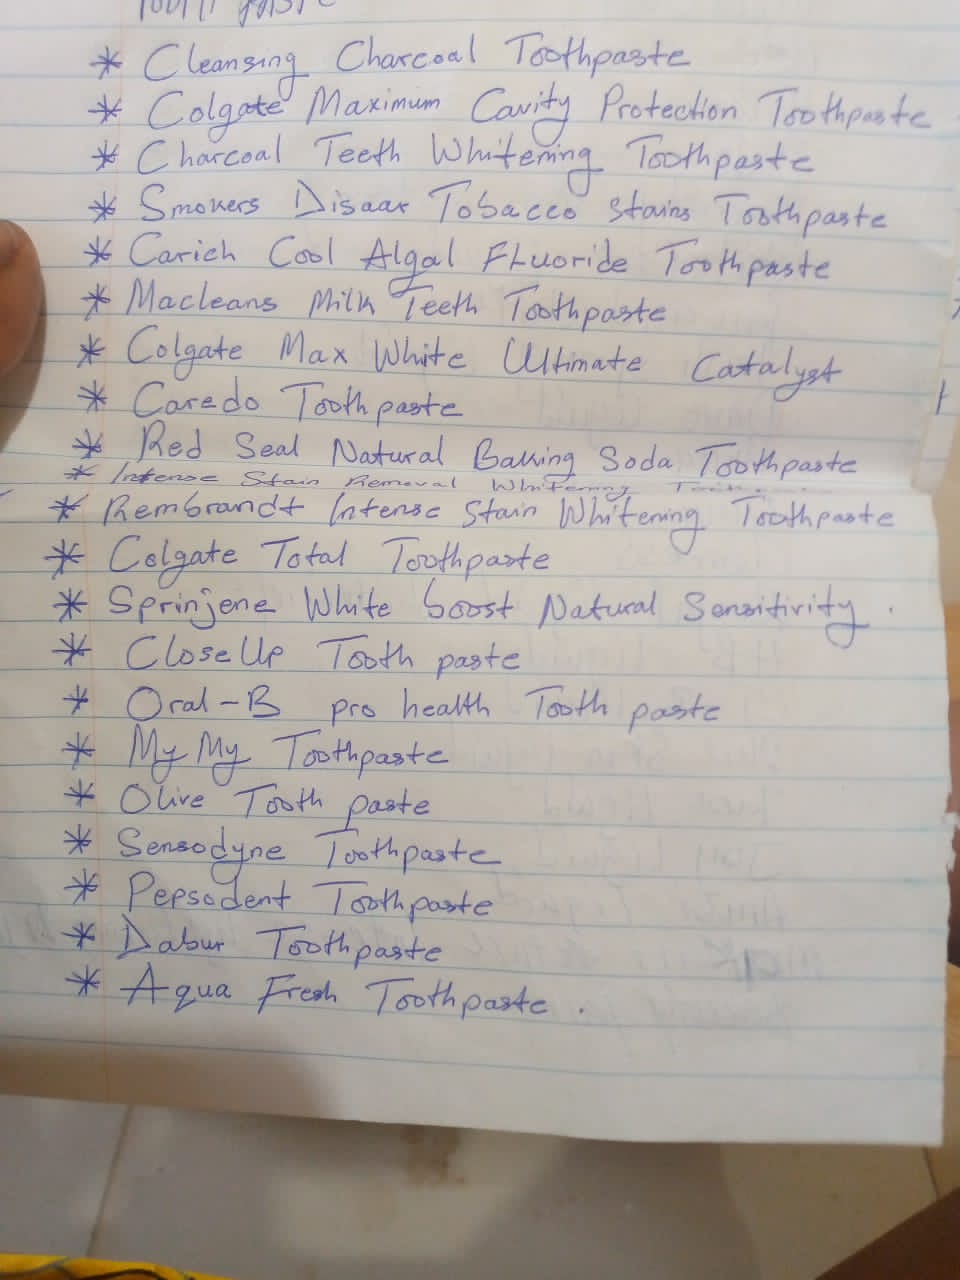 * Cleansing Charcoal Toothpaste
* Colgate Maximum Cavity Protection Toothpaste
* Charcoal Teeth Whitening Toothpaste
* Smokers Disaar Tobacco Stains Toothpaste
* Carich Cool Algal Fluoride Toothpaste
* Macleans Milk Teeth Toothpaste
* Colgate Max White Ultimate Catalyst
* Caredo Toothpaste
* Red Seal Natural Baking Soda Toothpaste
* Intense Stain Removal Whitening
* Rembrandt Intense Stain Whitening Toothpaste
* Colgate Total Toothpaste
* Sprinjene White boost Natural Sensitivity.
* CloseUp Tooth paste
* Oral-B pro health Tooth paste
* My My Toothpaste
* Olive Tooth paste
* Sensodyne Toothpaste
* Pepsodent Toothpaste
* Dabur Toothpaste
* Aqua Fresh Toothpaste.